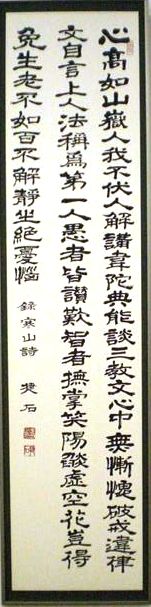 心高如山嶽人我不伏人解講韋陀典能談三教文心中無慚愧破戒違律
文自言上人法稱為第一人愚者皆讚歎智者撫掌笑陽燄虛空花豈得
免生老不如百不解靜坐絕憂惱
錄寒山詩 捷石